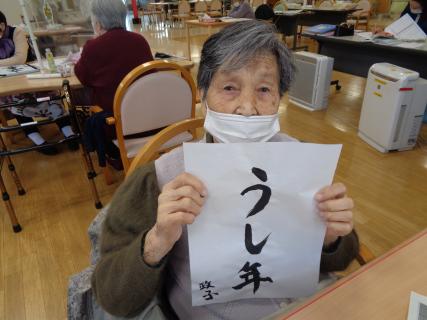 うし年
政子